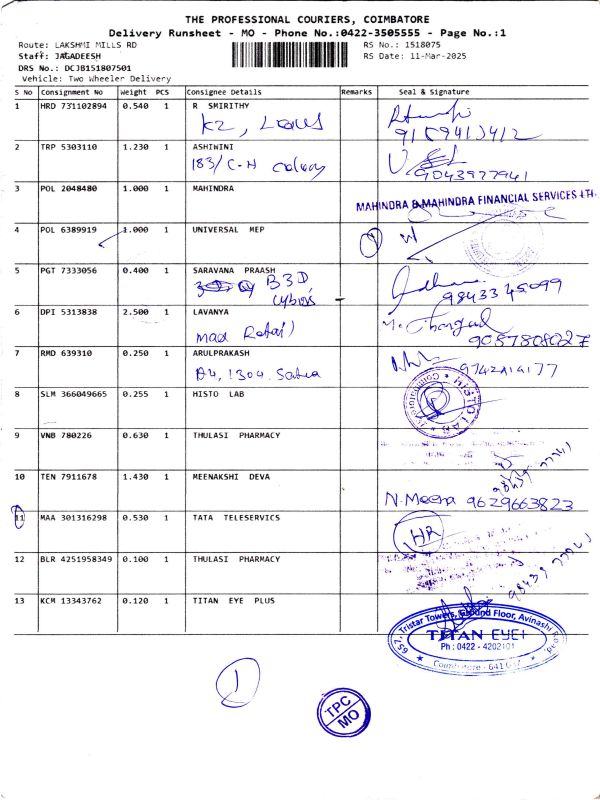 THE PROFESSIONAL COURIERS, COIMBATORE
Delivery Runsheet - MO - Phone No.:0422-3505555 - Page No.:1
Route: LAKSHMI MILLS RD RS No.: 1518075
Staff: JAGADEESH RS Date: 11-Mar-2025
DRS No.: DCJB151807501
Vehicle: Two Wheeler Delivery
S No Consignment No Weight PCS Consignee Details Remarks Seal & Signature
1 HRD 731102894 0.540 1 R SMIRITHY
K2,
2 TRP 5303110 1.230 1 ASHWINI
183/C-H Colony 9043977941
3 POL 2048480 1.000 1 MAHINDRA
MAHINDRA & MAHINDRA FINANCIAL SERVICES LTD.
4 POL 6389919 1.000 1 UNIVERSAL MEP
5 PGT 7333056 0.400 1 SARAVANA PRAASH
B3D 9843345099
6 DPI 5313838 2.500 1 LAVANYA
mad Retail 9087808027
7 RMD 639310 0.250 1 ARULPRAKASH
B4, 1304
8 SLM 366049665 0.255 1 HISTO LAB
HISTO LAB
9 VNB 780226 0.630 1 THULASI PHARMACY
10 TEN 7911678 1.430 1 MEENAKSHI DEVA
N. Meena 9629663823
11 MAA 301316298 0.530 1 TATA TELESERVICS
HR
12 BLR 4251958349 0.100 1 THULASI PHARMACY
13 KCM 13343762 0.120 1 TITAN EYE PLUS
657, Tristar Towers, Ground Floor, Avinashi Road,
TITAN EYE+
Ph : 0422 - 4202101
Coimbatore - 641 037
1
TPC
MO